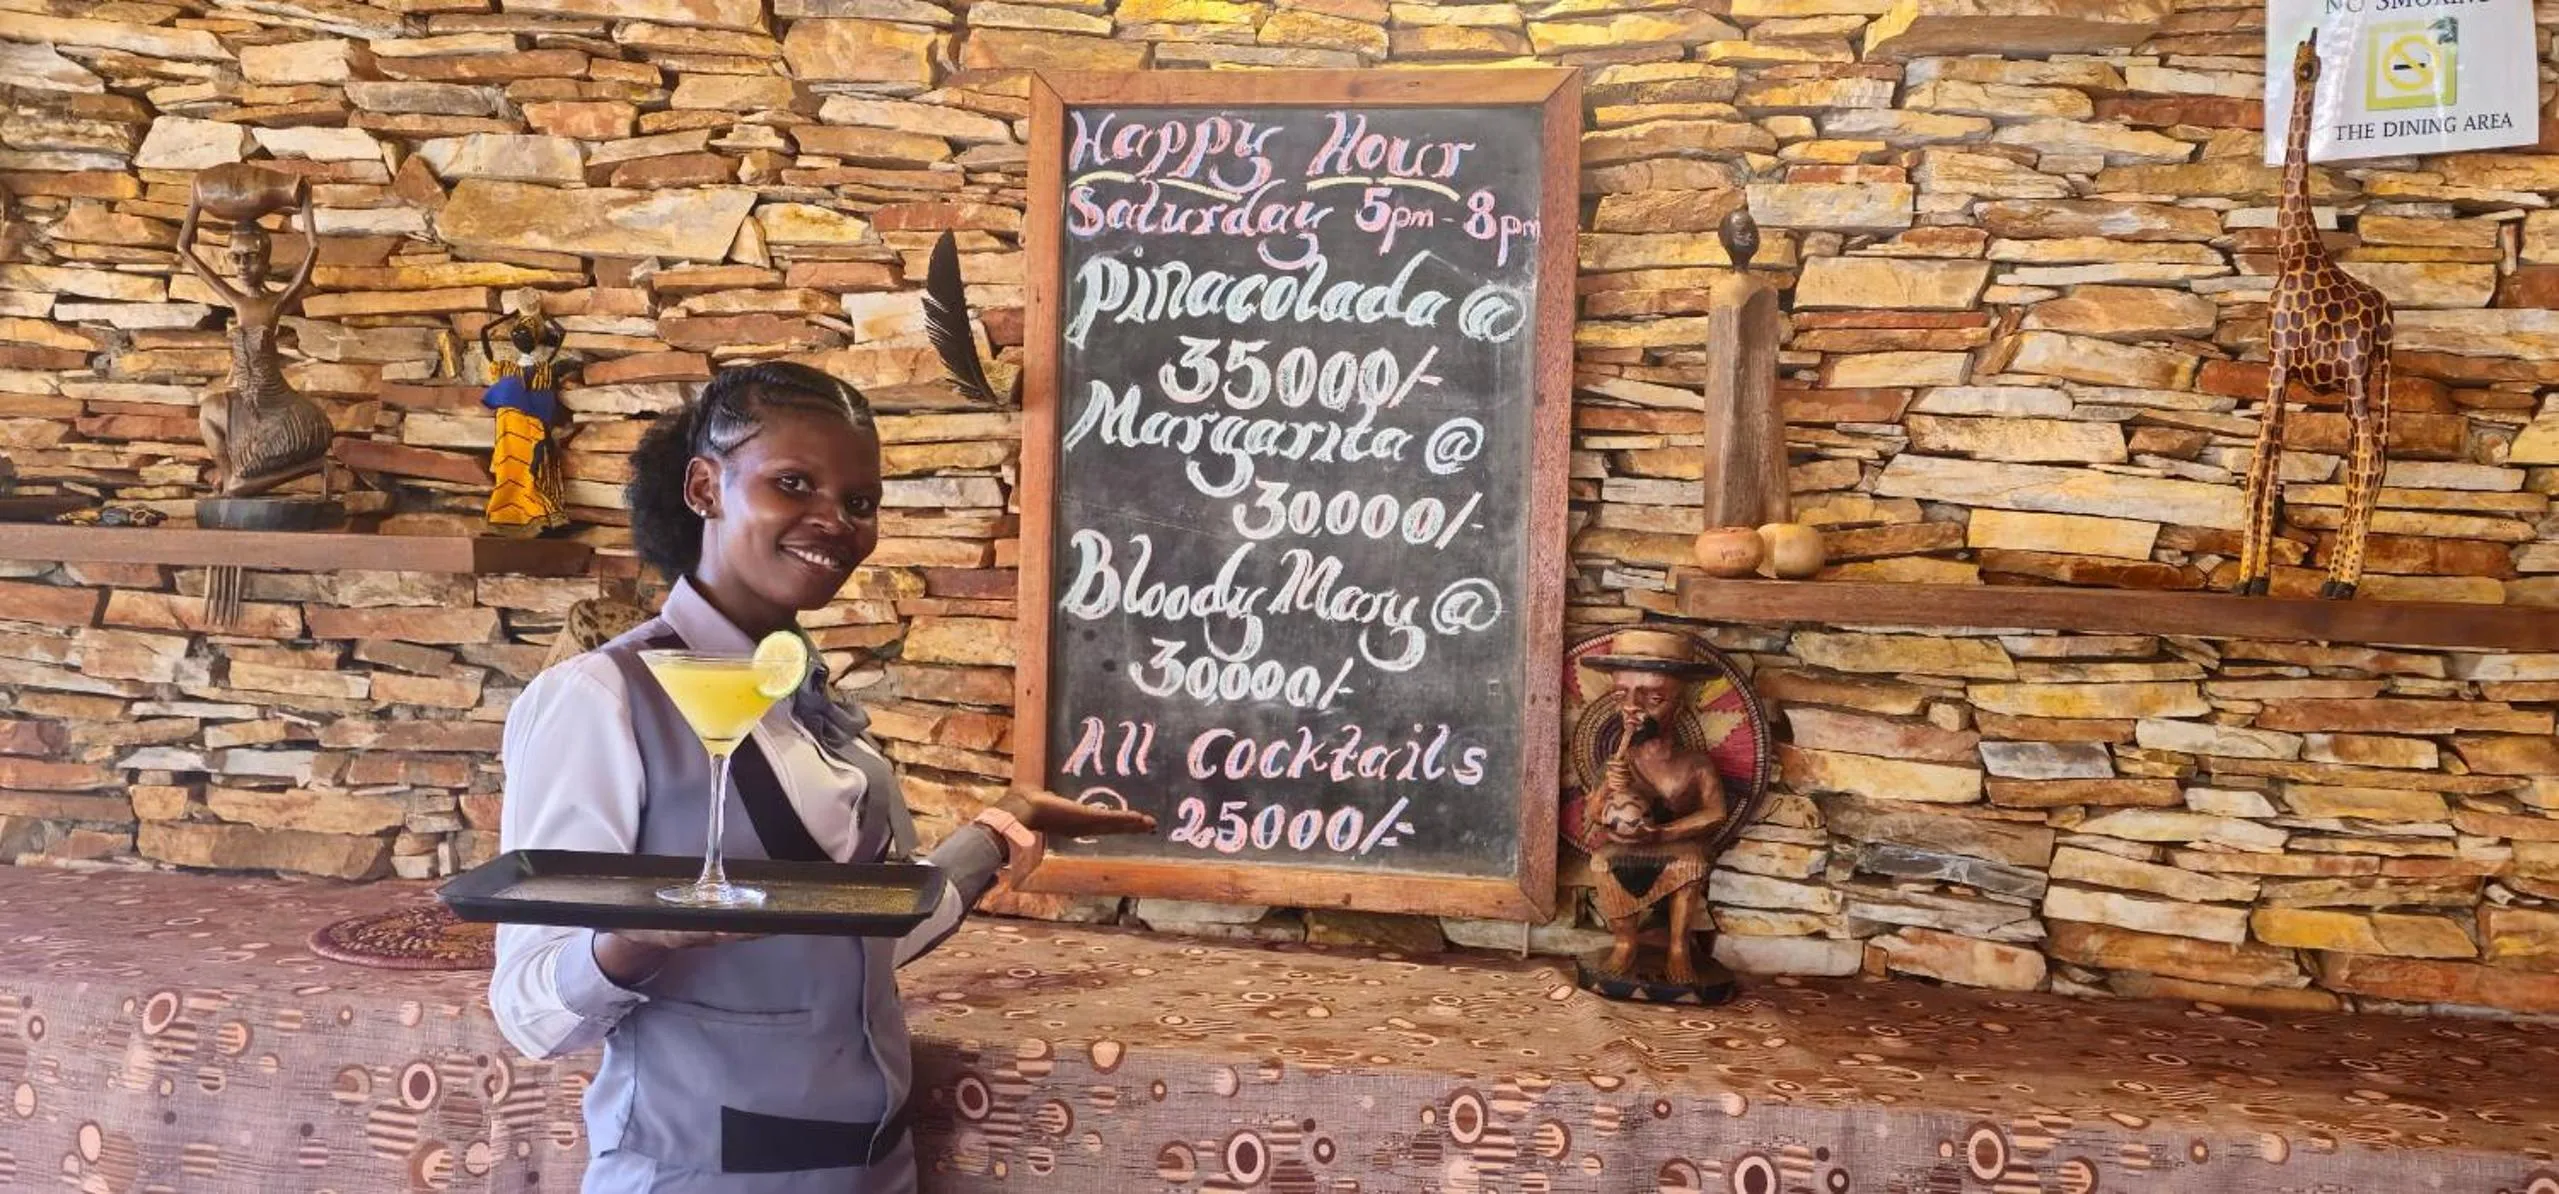 Happy Hour
Saturday 5pm - 8pm
Pinacolada @
35000/=
Margarita @
30000/=
Bloody Mary @
30,000/=
All Cocktails
@ 25000/=
NO SMOKING
THE DINING AREA